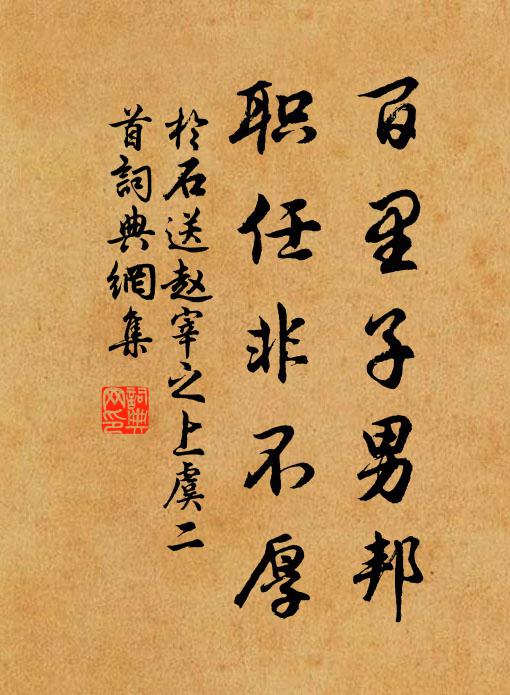 百里子男邦
职任非不厚
於石送赵宰之上虞二
首詞典網集
詞典
网印